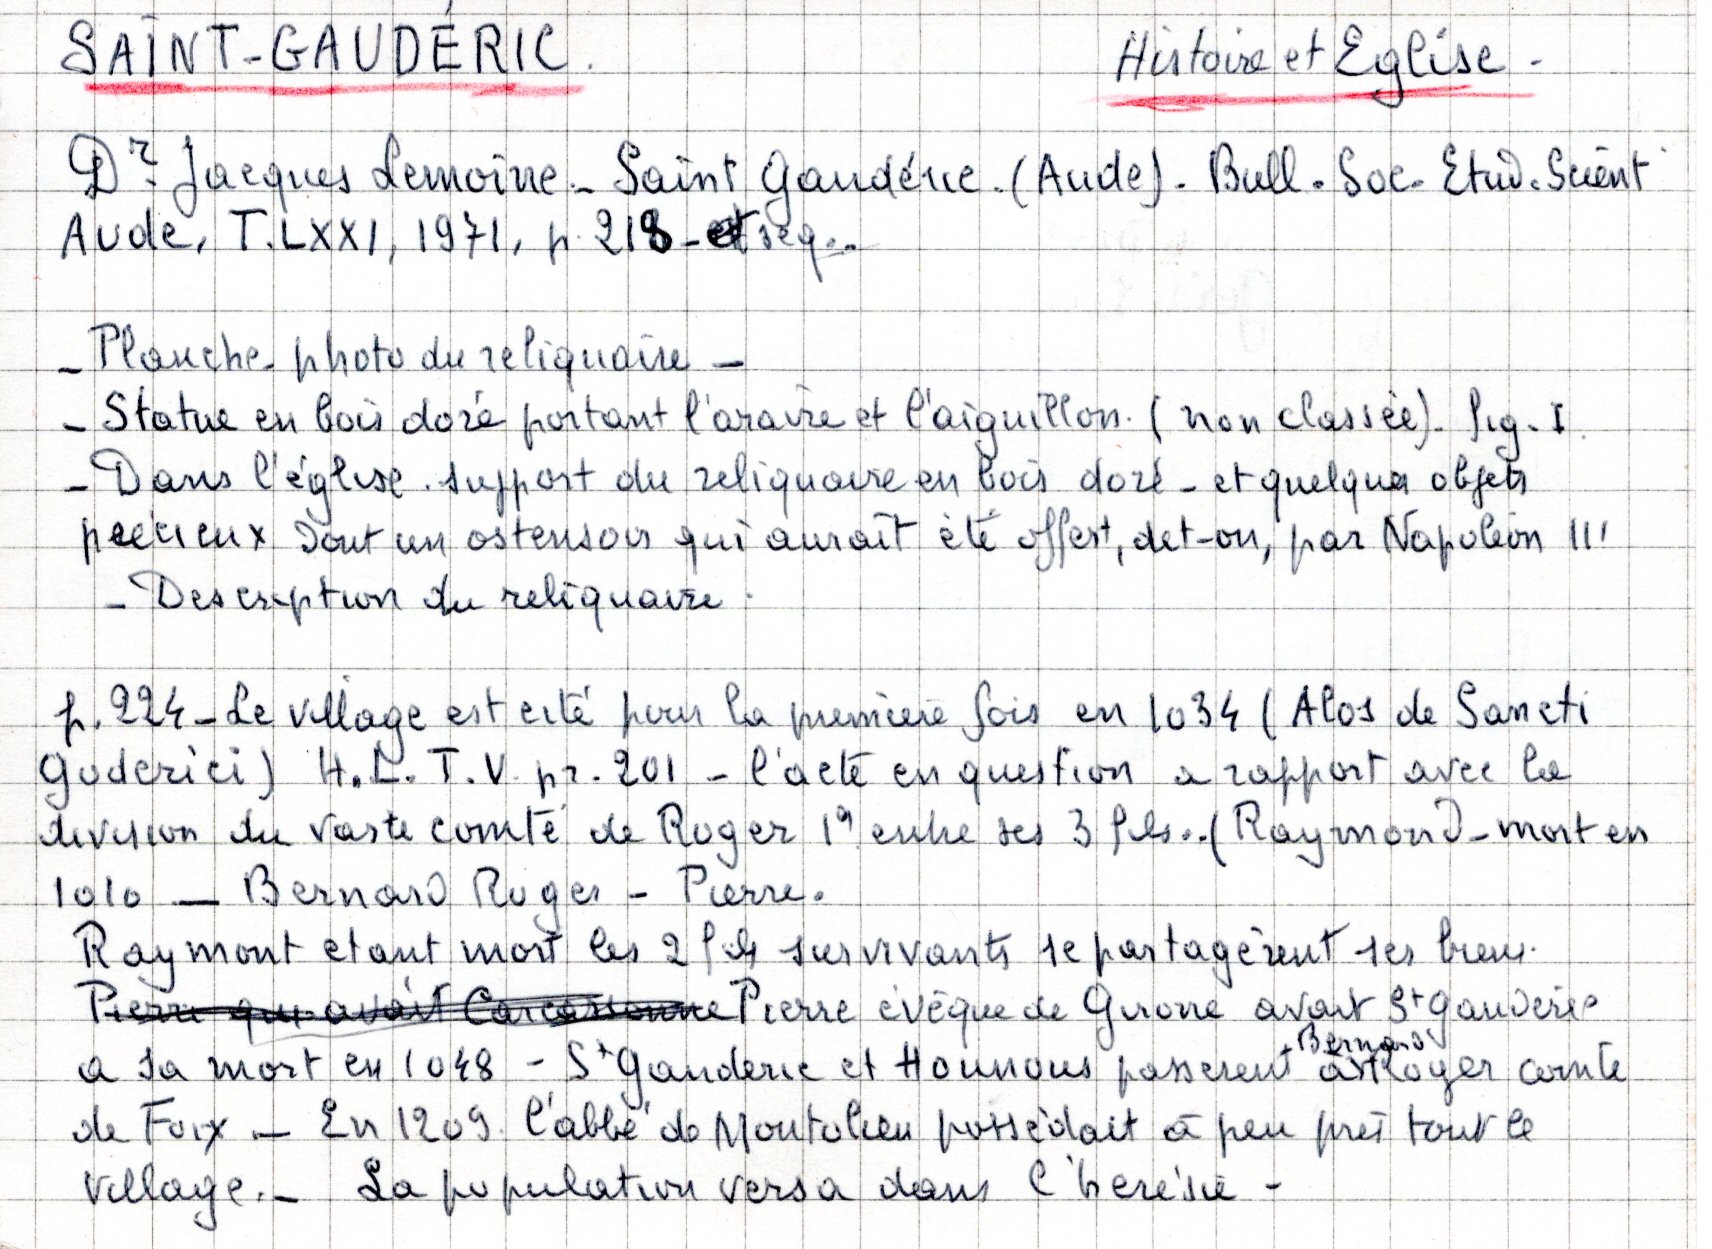 SAINT-GAUDÉRIC.
Histoire et Eglise -
Dr. Jacques Lemoine - Saint Gaudéric. (Aude). Bull. Soc. Etud. Scient
Aude. T. LXXI, 1971, p. 218 - et seq..
- Planche - photo du reliquaire -
- Statue en bois doré portant l'araire et l'aiguillon. (non classée). fig. I.
- Dans l'église. support du reliquaire en bois doré - et quelques objets
précieux dont un ostensoir qui aurait été offert, dit-on, par Napoléon III
- Description du reliquaire.
p. 224 - Le village est cité pour la première fois en 1034 (Alos de Sancti
Goderici) H.L. T.V. pr. 201 - l'acte en question a rapport avec la
division du vaste comté de Roger 1er entre ses 3 fils.. (Raymond - mort en
1010 — Bernard Roger - Pierre.
Raymont etant mort les 2 fils survivants se partagèrent ses biens.
Pierre qui avait Carcassonne Pierre évêque de Girone avait St Gauderic
a sa mort en 1048 - St Gauderic et Hounous passerent à Bernard Roger comte
de Foix - En 1209. l'abbé de Montolieu possédait à peu près tout le
village. - La population versa dans l'heresie -